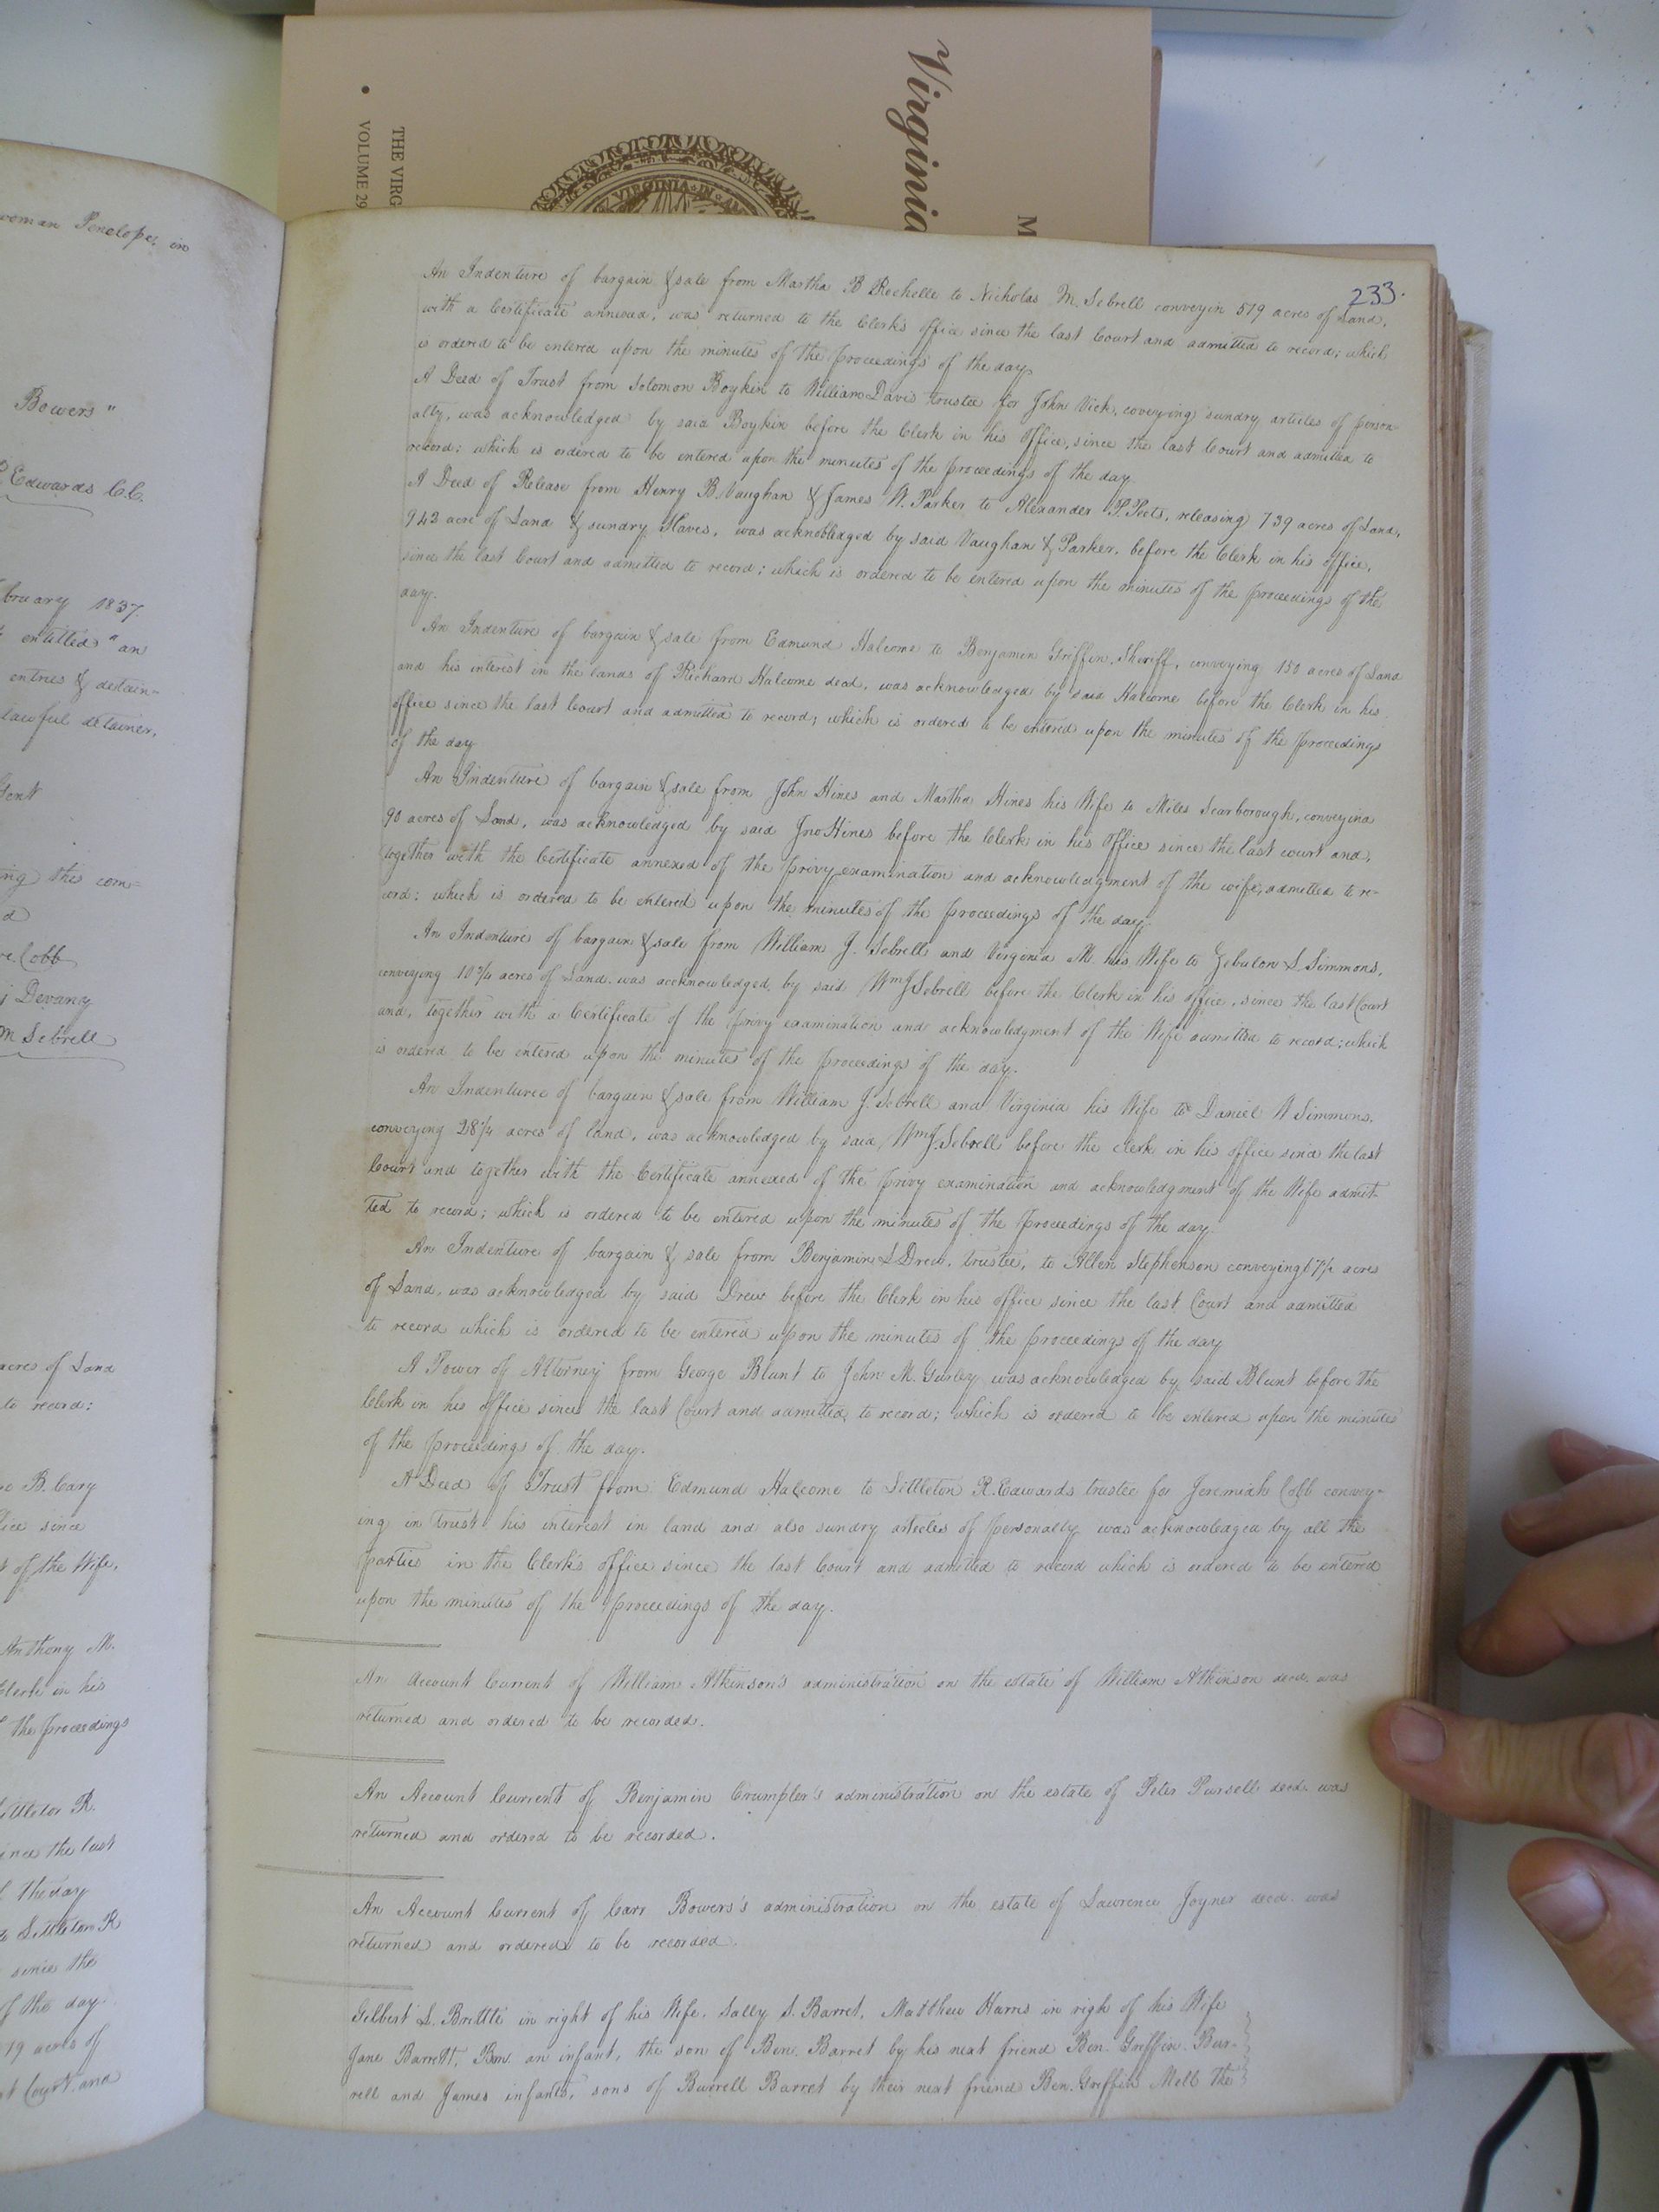 Virginia
M
THE VIRG
• VOLUME 29
VIRGINIA IN
woman Penelope, in
Bowers "
Edwards C.C.
bruary 1837.
entitled "an
entries & detain-
lawful detainer,
ing this com-
Cobb
Devany
M Sebrell
acres of Land
to record:
B. Cary
since
of the Wife,
Anthony M.
Clerk in his
the proceedings
Littleton R.
since the last
the day
to Littleton R
since the
of the day.
19 acres of
Court and
233.
An Indenture of bargain & sale from Martha B Rochelle to Nicholas M. Sebrell conveyin 579 acres of Land,
with a Certificate annexed, was returned to the Clerk's office since the last Court and admitted to record; which
is ordered to be entered upon the minutes of the proceedings of the day.
A Deed of Trust from Solomon Boykin to William Davis trustee for John Vick, coveying sundry articles of person-
alty, was acknowledged by said Boykin before the Clerk in his office, since the last Court and admitted to
record; which is ordered to be entered upon the minutes of the proceedings of the day.
A Deed of Release from Henry B. Vaughan & James W. Parker to Alexander P. Peets, releasing 739 acres of Land,
943 acre of Land & sundry Slaves, was acknowledged by said Vaughan & Parker, before the Clerk in his office,
since the last Court and admitted to record; which is ordered to be entered upon the minutes of the proceedings of the
day.
An Indenture of bargain & sale from Edmund Halcome to Benjamin Griffin, Sheriff, conveying 150 acres of Land
and his interest in the lands of Richard Halcome decd, was acknowledged by said Halcome before the Clerk in his
office since the last Court and admitted to record; which is ordered to be entered upon the minutes of the proceedings
of the day
An Indenture of bargain & sale from John Hines and Martha Hines his Wife to Miles Scarborough, conveying
90 acres of Land, was acknowledged by said Jno Hines before the Clerk in his Office since the last court and,
together with the Certificate annexed of the privy examination and acknowledgment of the wife, admitted to re-
cord: which is ordered to be entered upon the minutes of the proceedings of the day.
An Indenture of bargain & sale from William J. Sebrell and Virginia M. his Wife to Zebulon S Simmons,
conveying 10 3/4 acres of Land, was acknowledged by said Wm J Sebrell before the Clerk in his office, since the last Court
and, together with a Certificate of the privy examination and acknowledgment of the Wife admitted to record; which
is ordered to be entered upon the minutes of the proceedings of the day.
An Indenture of bargain & sale from William J. Sebrell and Virginia his Wife to Daniel W Simmons,
conveying 28 1/4 acres of land, was acknowledged by said Wm J. Sebrell before the clerk in his office since the last
Court and together with the Certificate annexed of the privy examination and acknowledgment of the Wife admit-
ted to record; which is ordered to be entered upon the minutes of the proceedings of the day.
An Indenture of bargain & sale from Benjamin S Drew, trustee, to Allen Stephenson conveying acres
of Land, was acknowledged by said Drew before the Clerk in his office since the last Court and admitted
to record which is ordered to be entered upon the minutes of the proceedings of the day
A Power of Attorney from George Blunt to John M. Gurley was acknowledged by said Blunt before the
Clerk in his office since the last Court and admitted to record; which is ordered to be entered upon the minutes
of the proceedings of the day.
A Deed of Trust from Edmund Halcome to Littleton R. Edwards trustee for Jeremiah Cobb convey-
ing in trust his interest in land and also sundry articles of personalty was acknowledged by all the
parties in the Clerk's office since the last Court and admitted to record which is ordered to be entered
upon the minutes of the proceedings of the day.
An Account Current of William Atkinson's administration on the estate of William Atkinson decd. was
returned and ordered to be recorded.
An Account Current of Benjamin Crumpler's administration on the estate of Peter Pursell decd. was
returned and ordered to be recorded.
An Account Current of Carr Bowers's administration on the estate of Lawrence Joyner decd. was
returned and ordered to be recorded.
Gilbert L. Brittle in right of his Wife, Sally S. Barret, Matthew Harris in righ of his Wife
Jane Barrett, Ben. an infant, the son of Ben. Barret by his next friend Ben. Griffin. Bur-
rell and James infants, sons of Burrell Barret by their next friend Ben. Griffin Mell the